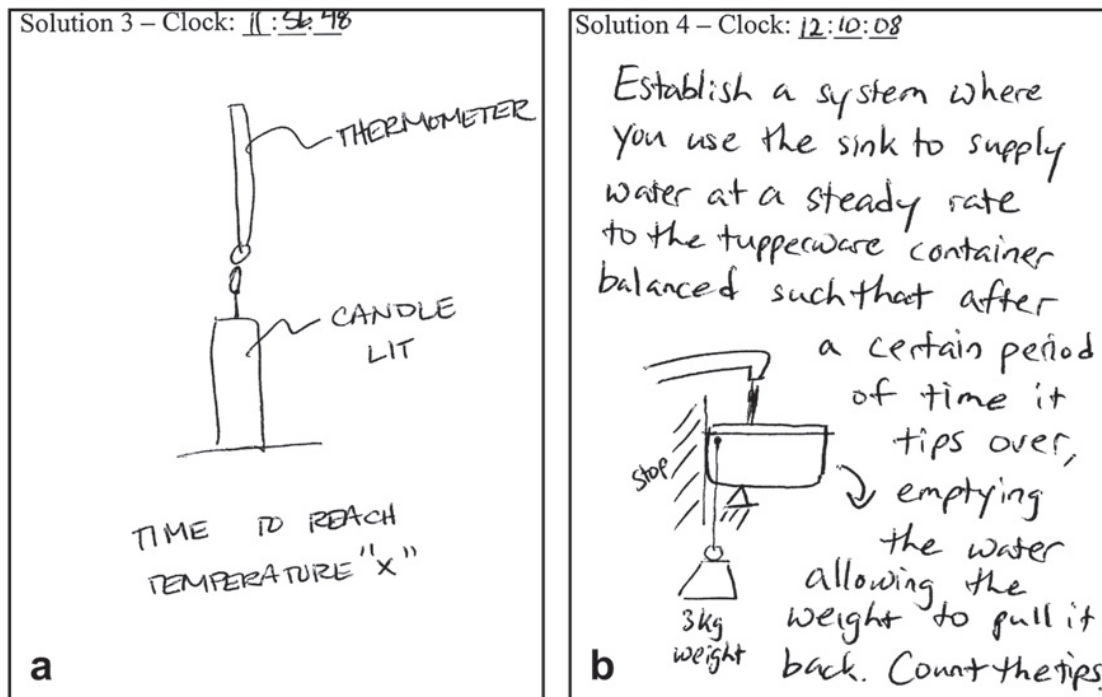 Solution 3 – Clock: 11:56:48
THERMOMETER
CANDLE
LIT
TIME TO REACH
TEMPERATURE "X"
a
Solution 4 – Clock: 12:10:08
Establish a system where
you use the sink to supply
water at a steady rate
to the tupperware container
balanced such that after
a certain period
of time it
tips over,
emptying
the water
allowing the
weight to pull it
back. Count the tips.
stop
3kg
weight
b